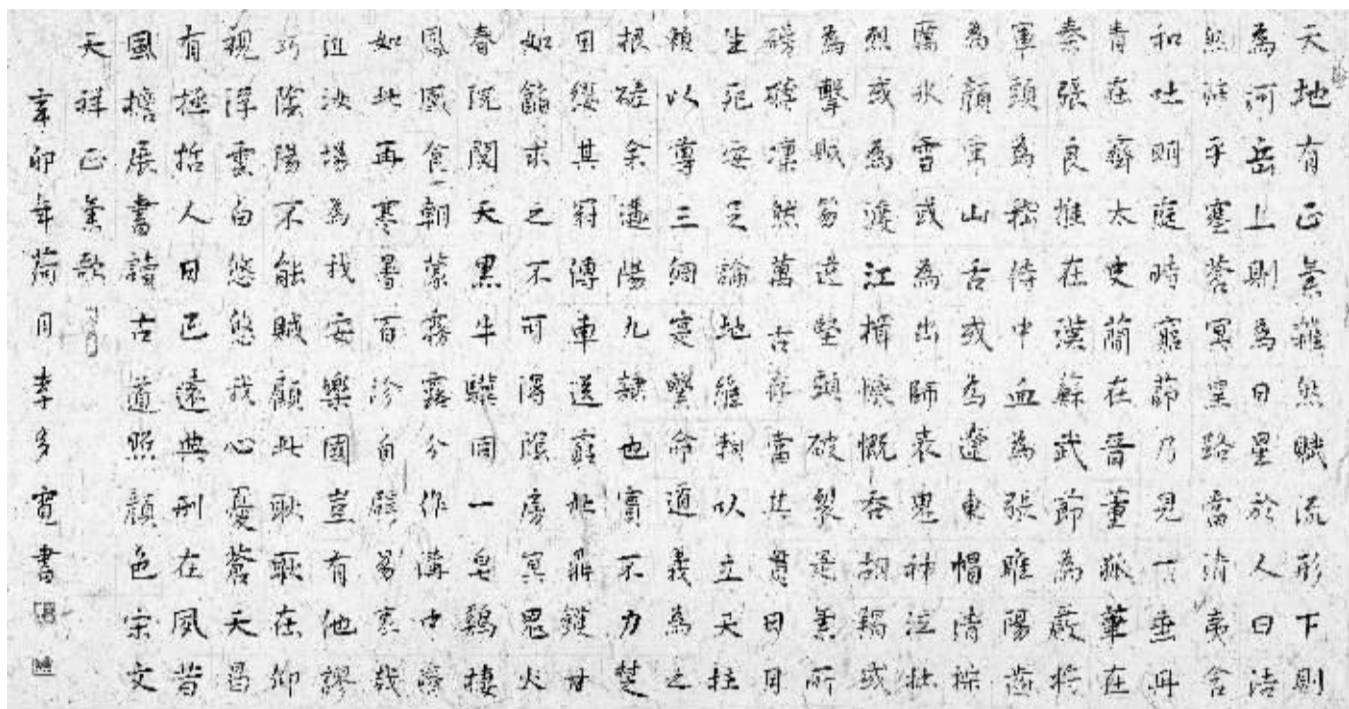 天地有正氣雜然賦流形下則
為河岳上則為日星於人曰浩
然沛乎塞蒼冥皇路當清夷含
和吐明庭時窮節乃見一一垂丹
青在齊太史簡在晉董狐筆在
秦張良椎在漢蘇武節為嚴將
軍頭為嵇侍中血為張睢陽齒
為顏常山舌或為遼東帽清操
厲冰雪或為出師表鬼神泣壯
烈或為渡江楫慷慨吞胡羯或
為擊賊笏逆豎頭破裂是氣所
磅礴凜然萬古存當其貫日月
生死安足論地維賴以立天柱
賴以尊三綱實繫命道義為之
根嗟余遘陽九隸也實不力楚
囚纓其冠傳車送窮北鼎鑊甘
如飴求之不可得陰房冥鬼火
春院閟天黑牛驥同一皂鷄棲
鳳凰食一朝蒙霧露分作溝中瘠
如此再寒暑百沴自辟易哀哉
沮洳場為我安樂國豈有他謬
巧陰陽不能賊顧此耿耿在仰
視浮雲白悠悠我心憂蒼天曷
有極哲人日已遠典刑在夙昔
風檐展書讀古道照顏色宋文
天祥正氣歌
辛卯年荷月李多寬書